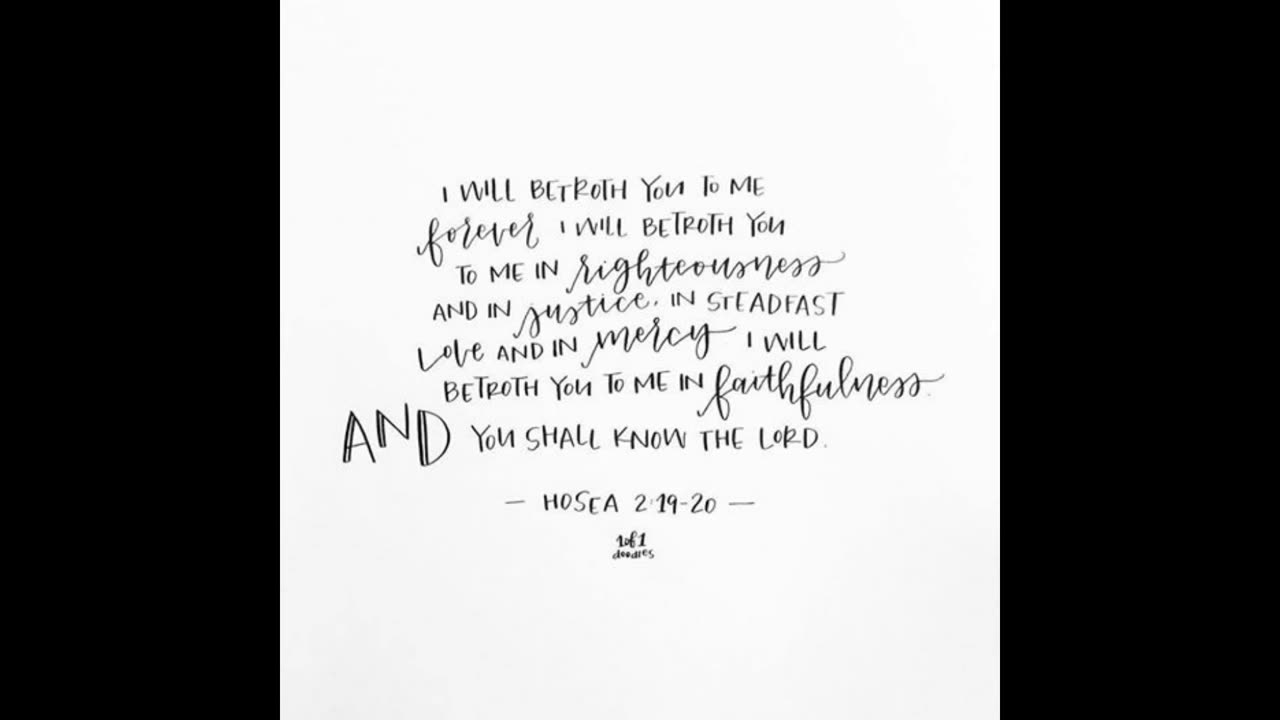 I WILL BETROTH YOU TO ME
forever I WILL BETROTH YOU
TO ME IN righteousness
AND IN justice. IN STEADFAST
Love AND IN mercy I WILL
BETROTH YOU TO ME IN faithfulness.
AND YOU SHALL KNOW THE LORD.
— HOSEA 2:19-20 —
1of1
doodles